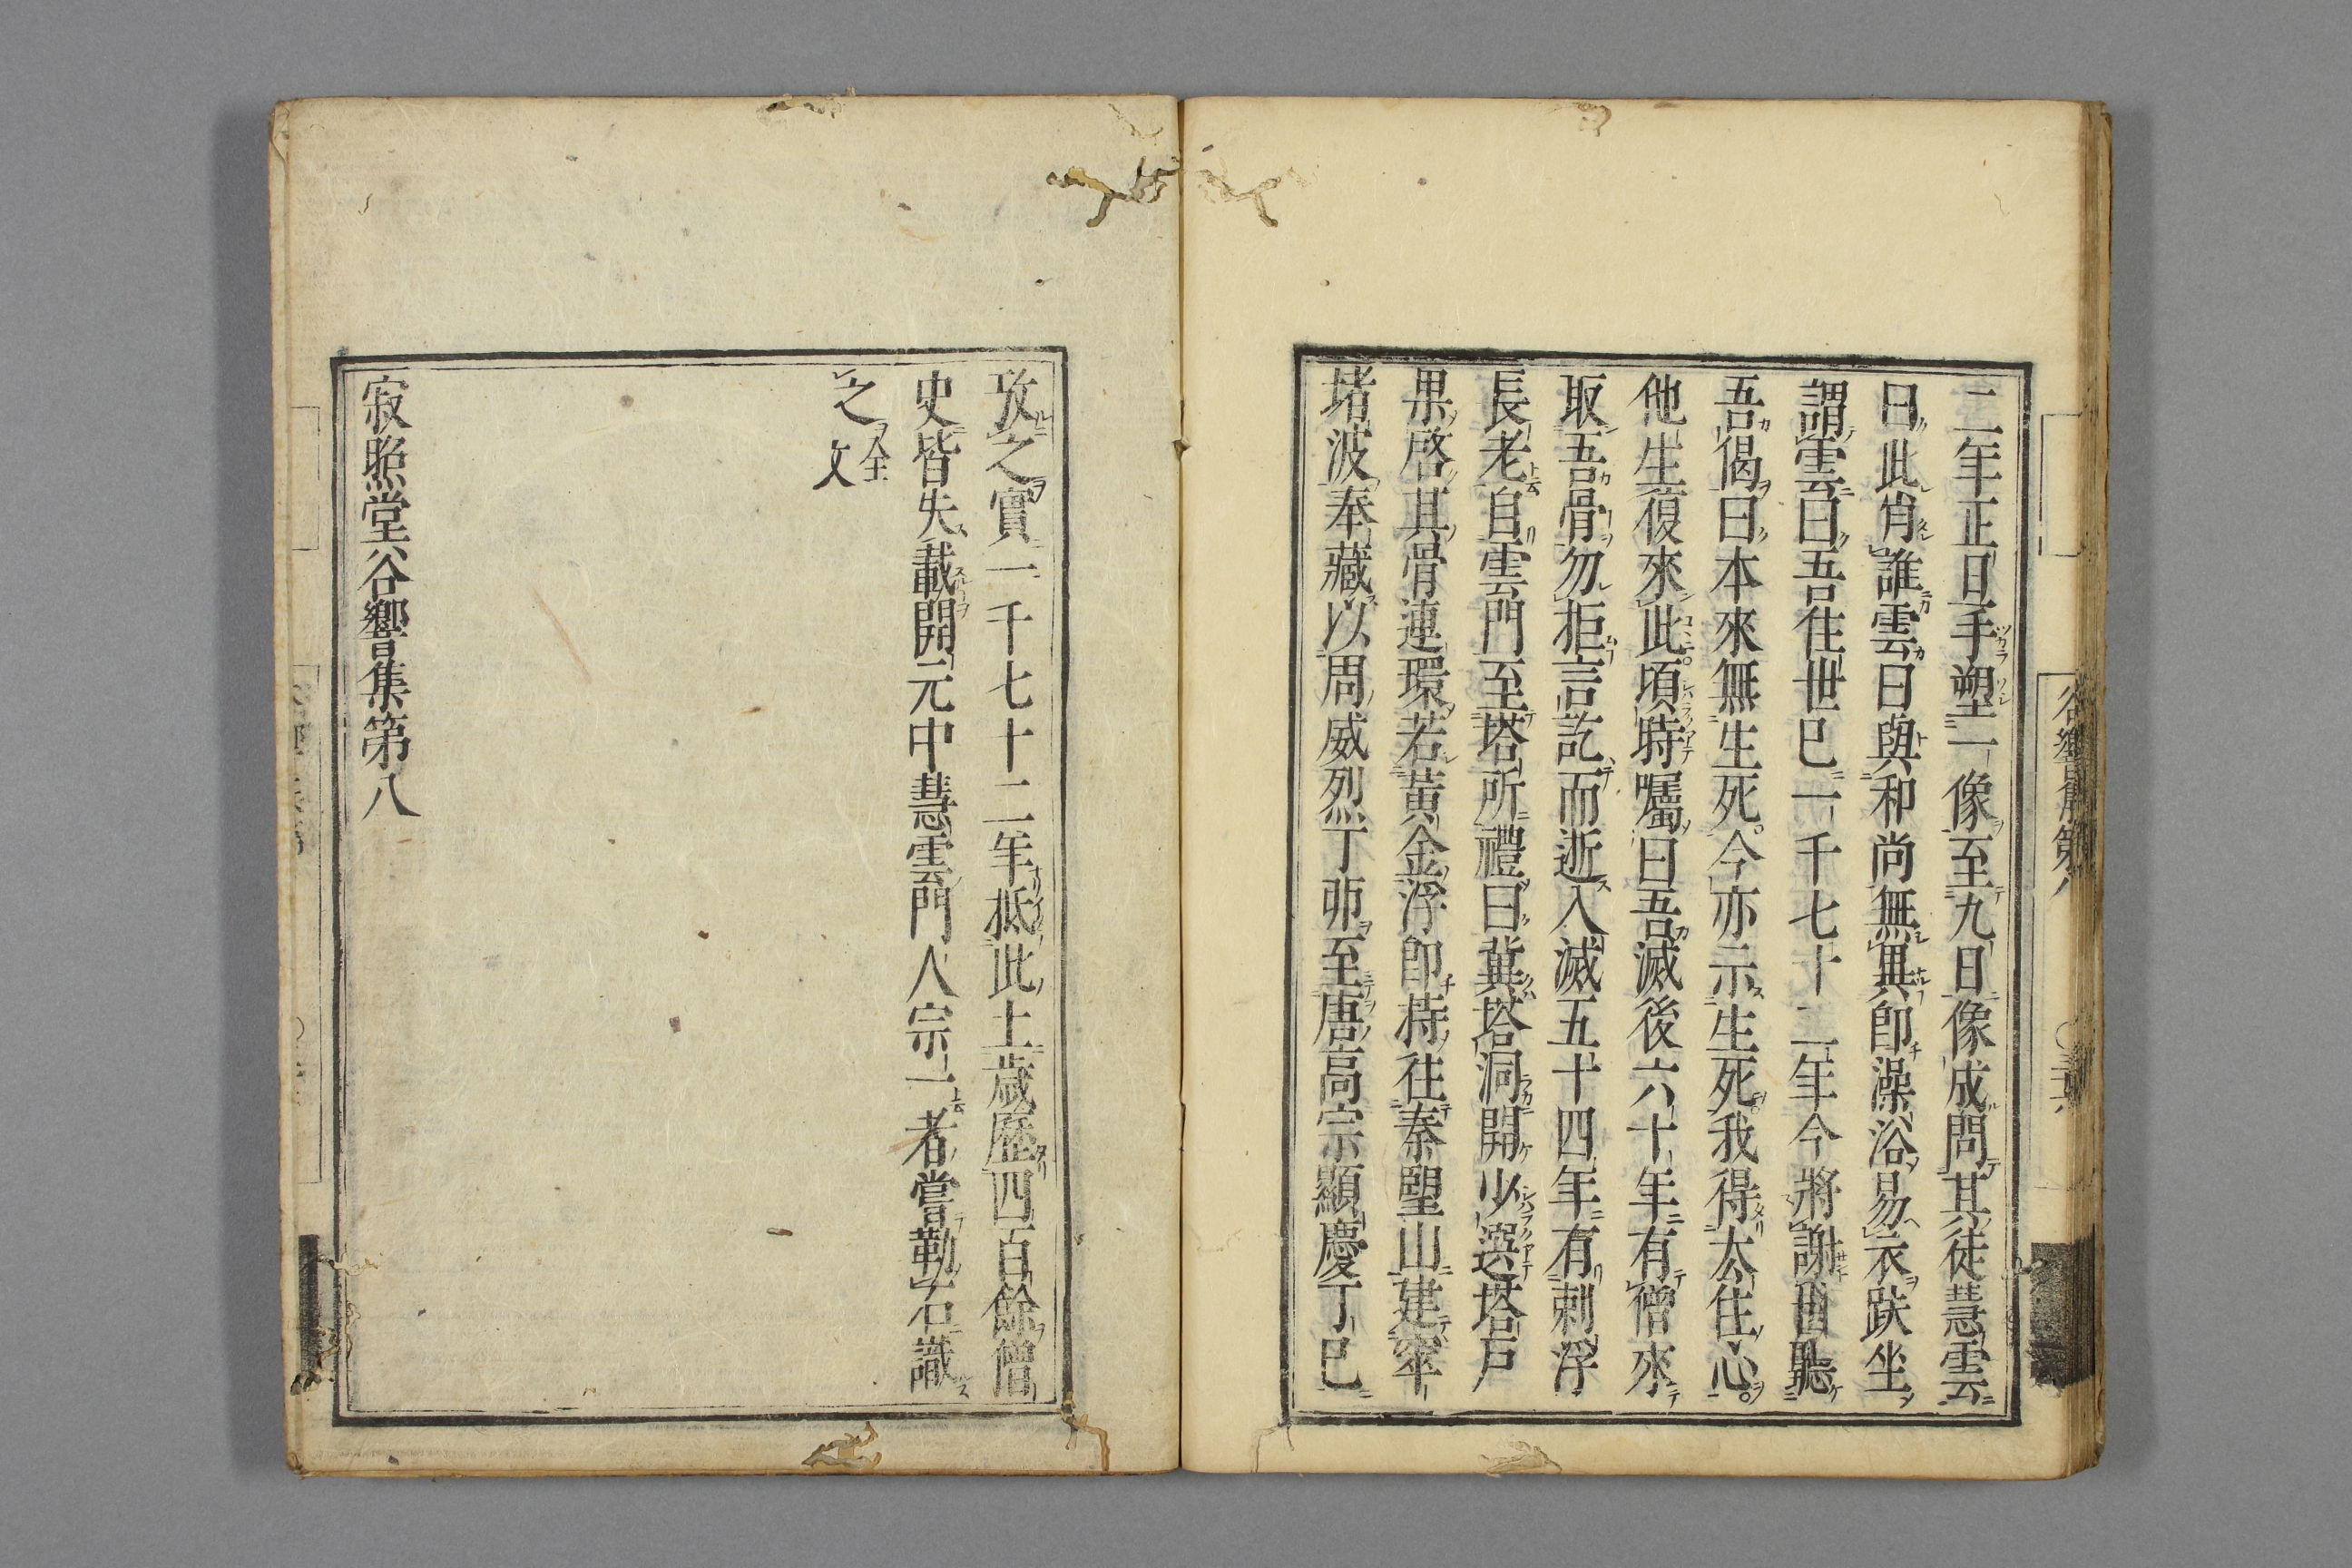 二年正旦手塑一像至九日像成問其徒慧雲
曰此肖誰雲曰與和尚無異即澡浴易衣趺坐
謂雲曰吾住世已一千七十二年今將謝世聽
吾偈曰本來無生死今亦示生死我得去住心
他生復來此頃時囑曰吾滅後六十年有僧來
取吾骨勿拒言訖而逝入滅五十四年有刺浮
長老自雲門至塔所禮曰冀塔洞開少選塔戶
果啓其骨連環若黃金浮即持往秦望山建窣
堵波奉藏以周威烈丁卯至唐高宗顯慶丁巳
谷響集第八
攷之實一千七十二年抵此土歲歷四百餘僧
史皆失載開元中慧雲門人宗一者嘗勒石識
之
全文
寂照堂谷響集第八